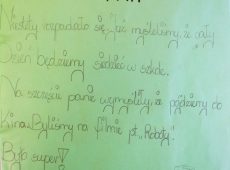 Niestety rozpadało się i już myśleliśmy, że cały
Dzień będziemy siedzieć w szkole.
Na szczęście panie wymyśliły, że pójdziemy do
Kina. Byliśmy na filmie pt. „Roboty".
Było super!